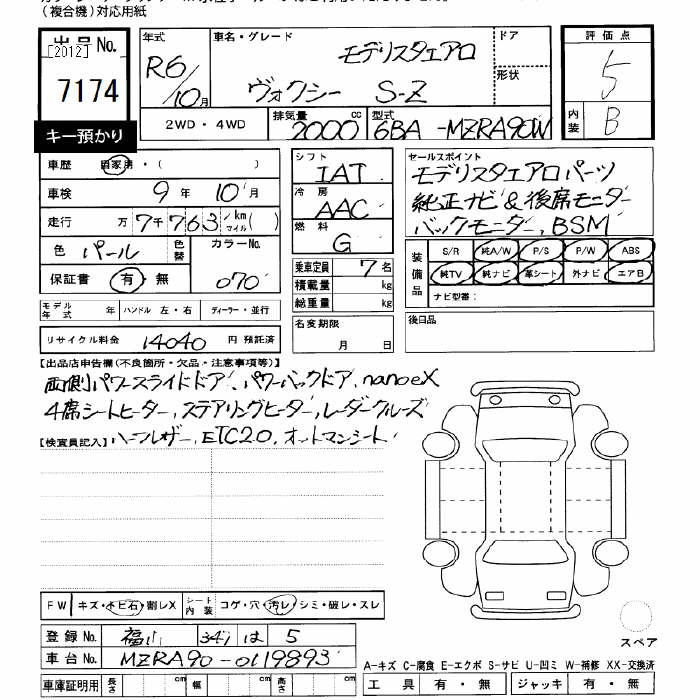 （複合機）対応用紙
出品No.
[2012]
7174
キー預かり
年式
R6/10月
車名・グレード
モデリスタエアロ
ヴォクシー S-Z
ドア
形状
評価点
5
内装
B
2WD・4WD
排気量
2000cc
型式
6BA-MZRA90W
車歴
自家用・( )
車検
9年10月
走行
万7千763km(マイル)
色
パール
色替
カラーNo.
070
保証書
有・無
モデル年式
年
ハンドル 左・右
ディーラー・並行
リサイクル料金
14040
円 預託済
シフト
IAT
冷房
AAC
燃料
G
乗車定員
7名
積載量
kg
総重量
kg
名変期限
月 日
セールスポイント
モデリスタエアロパーツ
純正ナビ&後席モニター
バックモニター,BSM
装備品
S/R 純A/W P/S P/W ABS
純TV 純ナビ 革シート 外ナビ エアB
ナビ型番：
後日品
【出品店申告欄(不良箇所・欠品・注意事項等)】
両側パワースライドドア、パワーバックドア、nanoeX
4席シートヒーター,ステアリングヒーター,レーダークルーズ
【検査員記入】
ハーフレザー,ETC2.0,オットマンシート
FW
キズ・トビ石・割レX
シート内装
コゲ・穴・汚レ・シミ・破レ・スレ
登録No.
福山 347 は 5
車台No.
MZRA90-0119893
車庫証明用
長さ cm 幅 cm 高さ cm
スペア
A-キズ C-腐食 E-エクボ S-サビ U-凹ミ W-補修 XX-交換済
工具 有・無 ジャッキ 有・無